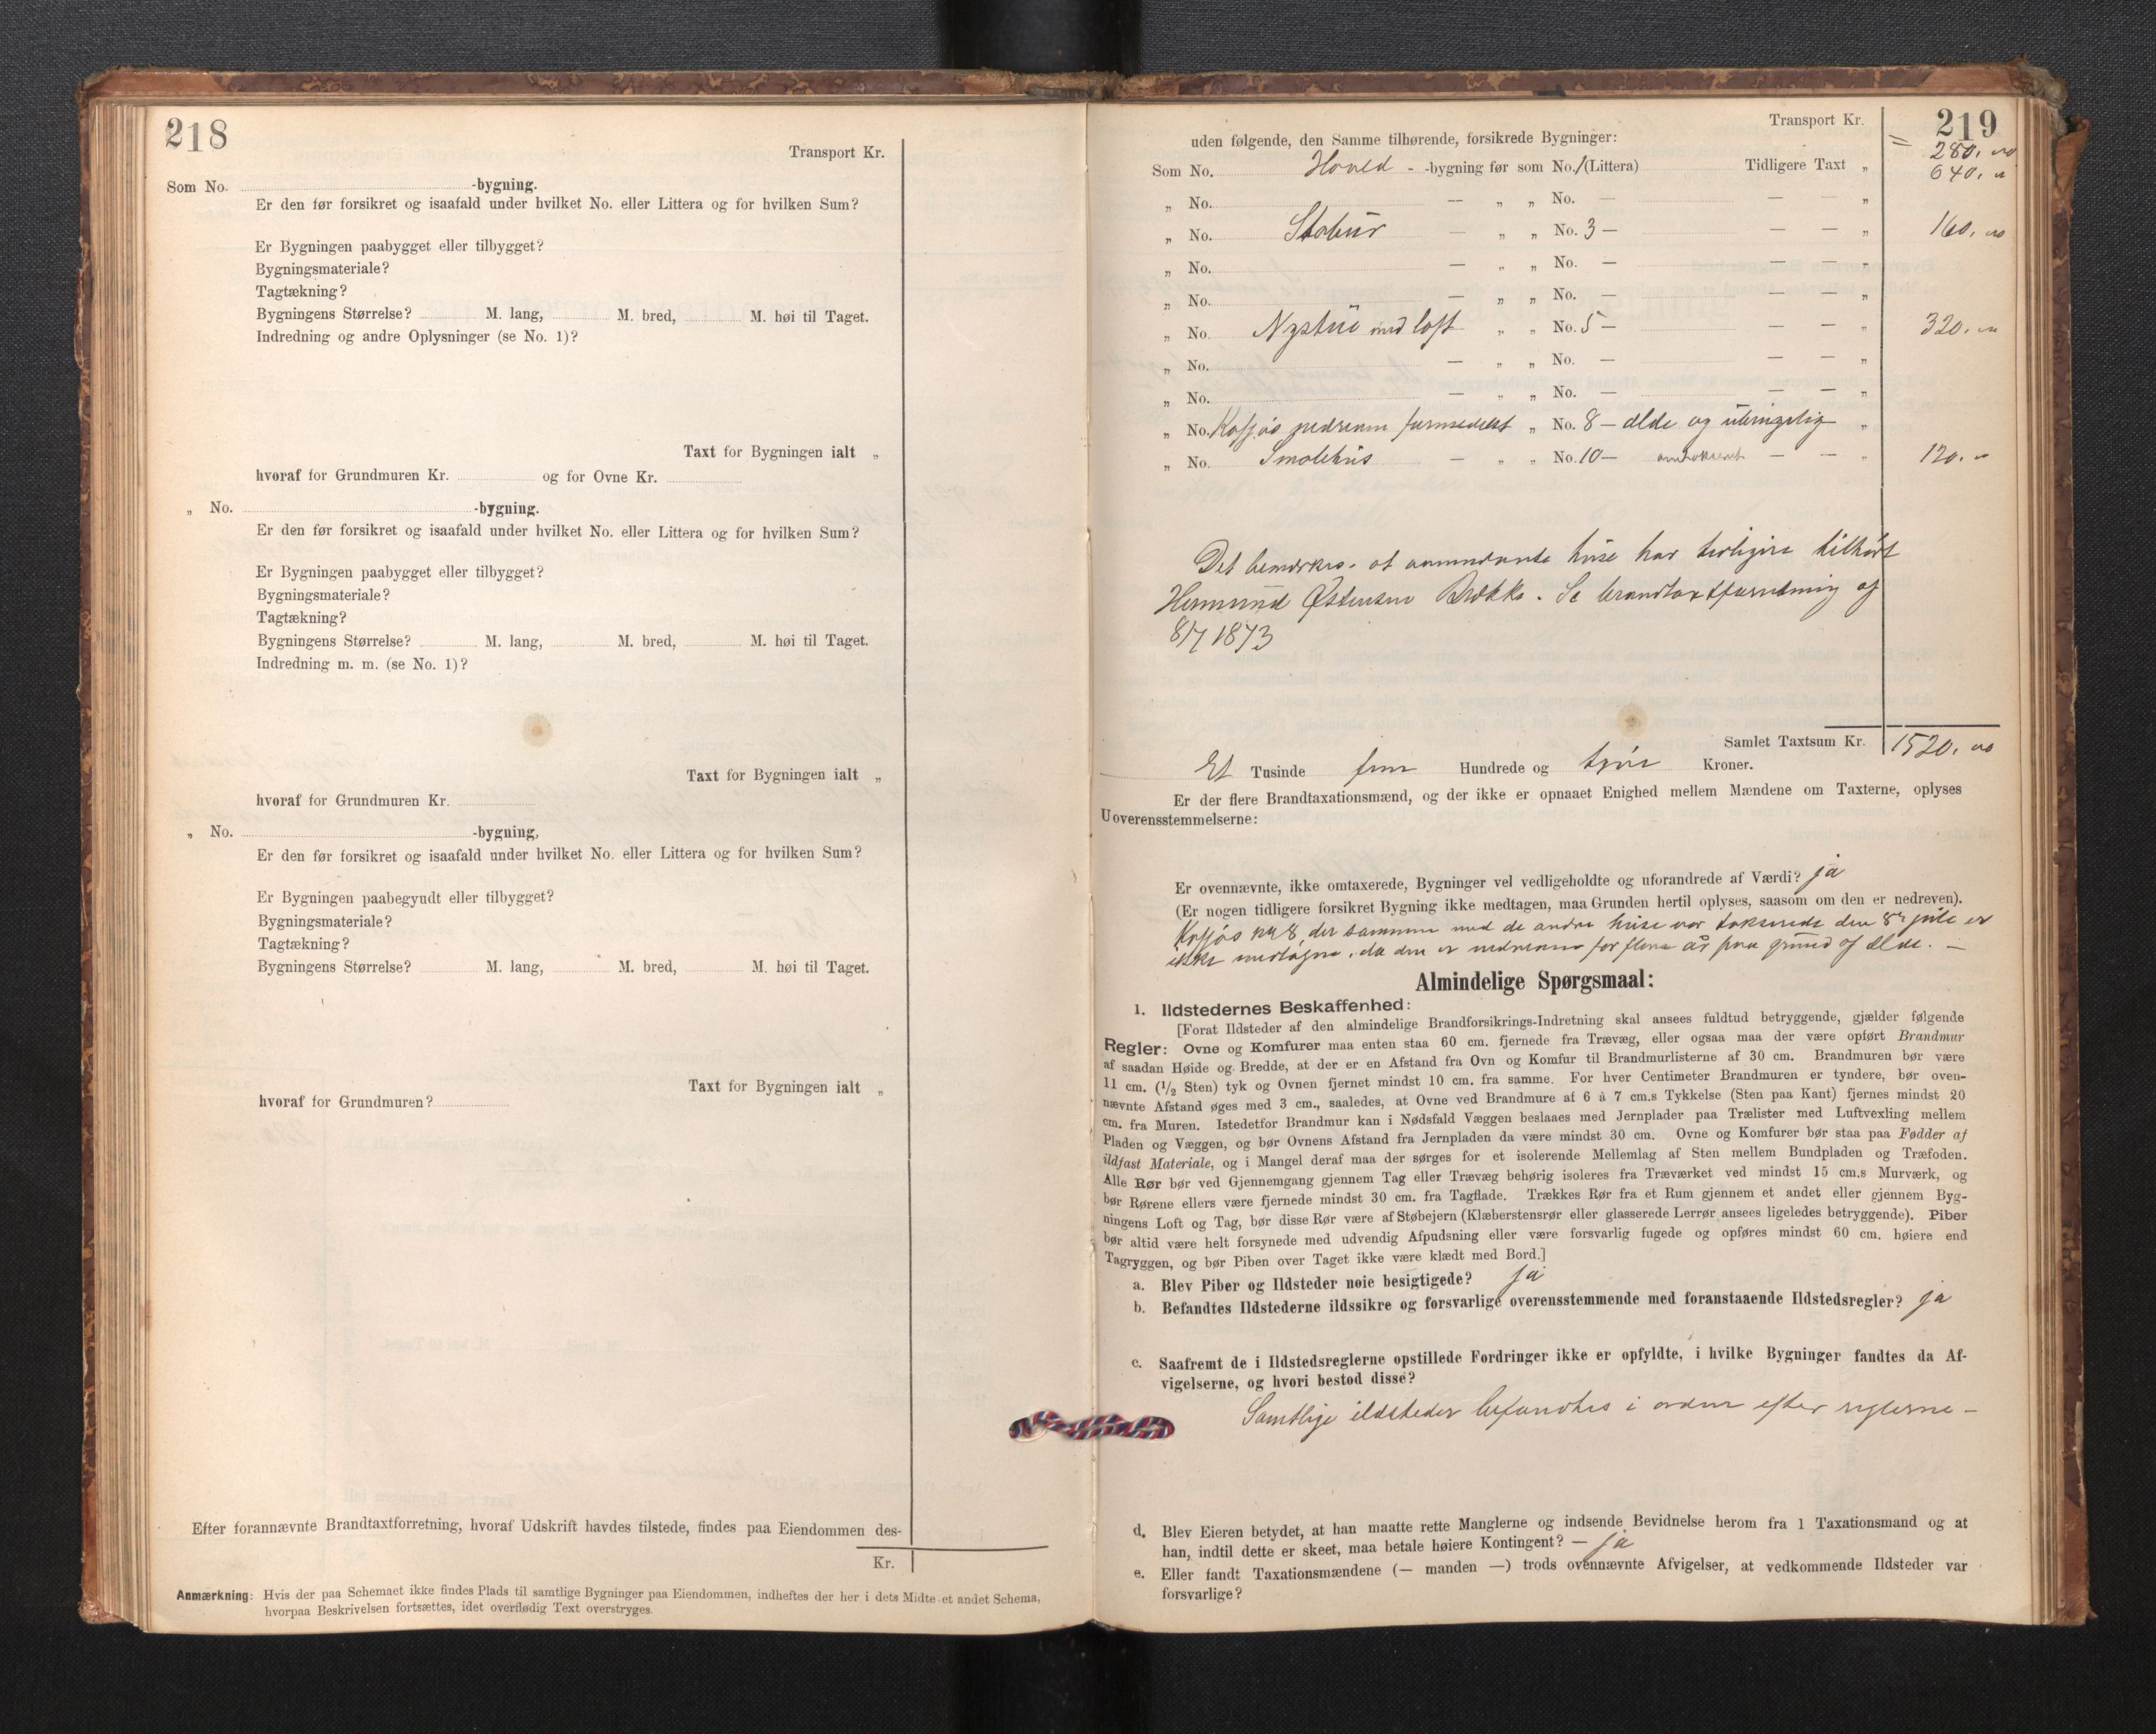 218
Transport Kr.
Som No. -bygning.
Er den før forsikret og isaafald under hvilket No. eller Littera og for hvilken Sum?
Er Bygningen paabygget eller tilbygget?
Bygningsmateriale?
Tagtækning?
Bygningens Størrelse? M. lang, M. bred, M. høi til Taget.
Indredning og andre Oplysninger (se No. 1)?
Taxt for Bygningen ialt „
hvoraf for Grundmuren Kr. og for Ovne Kr.
„ No. -bygning.
Er den før forsikret og isaafald under hvilket No. eller Littera og for hvilken Sum?
Er Bygningen paabygget eller tilbygget?
Bygningsmateriale?
Tagtækning?
Bygningens Størrelse? M. lang, M. bred, M. høi til Taget.
Indredning m. m. (se No. 1)?
Taxt for Bygningen ialt „
hvoraf for Grundmuren Kr.
„ No. -bygning,
Er den før forsikret og isaafald under hvilket No. eller Littera og for hvilken Sum?
Er Bygningen paabegyudt eller tilbygget?
Bygningsmateriale?
Tagtækning?
Bygningens Størrelse? M. lang, M. bred, M. høi til Taget.
Taxt for Bygningen ialt „
hvoraf for Grundmuren?
Efter forannævnte Brandtaxtforretning, hvoraf Udskrift havdes tilstede, findes paa Eiendommen des-
Kr.
Anmærkning: Hvis der paa Schemaet ikke findes Plads til samtlige Bygninger paa Eiendommen, indheftes der her i dets Midte et andet Schema,
hvorpaa Beskrivelsen fortsættes, idet overflødig Text overstryges.
219
Transport Kr. = 280,
uden følgende, den Samme tilhørende, forsikrede Bygninger:
Som No. -bygning før som No. 1 (Littera) Tidligere Taxt „ 640,
„ No. — „ „ No. — — — „
„ No. Stabur — „ „ No. 3 — — — „ 160,
„ No. — „ „ No. — — — „
„ No. — „ „ No. — — — „
„ No. Nystue med loft „ „ No. 5 — — — „ 320,
„ No. — „ „ No. — — — „
„ No. — „ „ No. — — — „
„ No. nedreven formedelst „ No. 8 — ælde og „
„ No. Smalehus — „ „ No. 10 — — — „ 120,
Det bemærkes at huse har tidligere tilhørt
Østensen Brække. Se brandtaxtforretning af
8/7 1873
Samlet Taxtsum Kr. 1520,
Et Tusinde fem Hundrede og tyve Kroner.
Er der flere Brandtaxationsmænd, og der ikke er opnaaet Enighed mellem Mændene om Taxterne, oplyses
Uoverensstemmelserne:
Er ovennævnte, ikke omtaxerede, Bygninger vel vedligeholdte og uforandrede af Værdi? ja
(Er nogen tidligere forsikret Bygning ikke medtagen, maa Grunden hertil oplyses, saasom om den er nedreven).
8, der sammen med de andre huse var takserede den 8de juli er
ikke medtagen, da den er nedreven for flere år paa grund af ælde. —
Almindelige Spørgsmaal:
1. Ildstedernes Beskaffenhed:
[Forat Ildsteder af den almindelige Brandforsikrings-Indretning skal ansees fuldtud betryggende, gjælder følgende
Regler: Ovne og Komfurer maa enten staa 60 cm. fjernede fra Trævæg, eller ogsaa maa der være opført Brandmur
af saadan Høide og Bredde, at der er en Afstand fra Ovn og Komfur til Brandmurlisterne af 30 cm. Brandmuren bør være
11 cm. (½ Sten) tyk og Ovnen fjernet mindst 10 cm. fra samme. For hver Centimeter Brandmuren er tyndere, bør oven-
nævnte Afstand øges med 3 cm., saaledes, at Ovne ved Brandmure af 6 à 7 cm.s Tykkelse (Sten paa Kant) fjernes mindst 20
cm. fra Muren. Istedetfor Brandmur kan i Nødsfald Væggen beslaaes med Jernplader paa Trælister med Luftvexling mellem
Pladen og Væggen, og bør Ovnens Afstand fra Jernpladen da være mindst 30 cm. Ovne og Komfurer bør staa paa Fødder af
ildfast Materiale, og i Mangel deraf maa der sørges for et isolerende Mellemlag af Sten mellem Bundpladen og Træfoden.
Alle Rør bør ved Gjennemgang gjennem Tag eller Trævæg behørig isoleres fra Træværket ved mindst 15 cm.s Murværk, og
bør Rørene ellers være fjernede mindst 30 cm. fra Tagflade. Trækkes Rør fra et Rum gjennem et andet eller gjennem Byg-
ningens Loft og Tag, bør disse Rør være af Støbejern (Klæberstensrør eller glasserede Lerrør ansees ligeledes betryggende). Piber
bør altid være helt forsynede med udvendig Afpudsning eller være forsvarlig fugede og opføres mindst 60 cm. høiere end
Tagryggen, og bør Piben over Taget ikke være klædt med Bord.]
a. Blev Piber og Ildsteder nøie besigtigede? ja
b. Befandtes Ildstederne ildssikre og forsvarlige overensstemmende med foranstaaende Ildstedsregler? ja
c. Saafremt de i Ildstedsreglerne opstillede Fordringer ikke er opfyldte, i hvilke Bygninger fandtes da Af-
vigelserne, og hvori bestod disse?
Samtlige ildsteder befandtes i orden efter reglerne —
d. Blev Eieren betydet, at han maatte rette Manglerne og indsende Bevidnelse herom fra 1 Taxationsmand og at
han, indtil dette er skeet, maa betale høiere Kontingent? — ja
e. Eller fandt Taxationsmændene (— manden —) trods ovennævnte Afvigelser, at vedkommende Ildsteder var
forsvarlige?